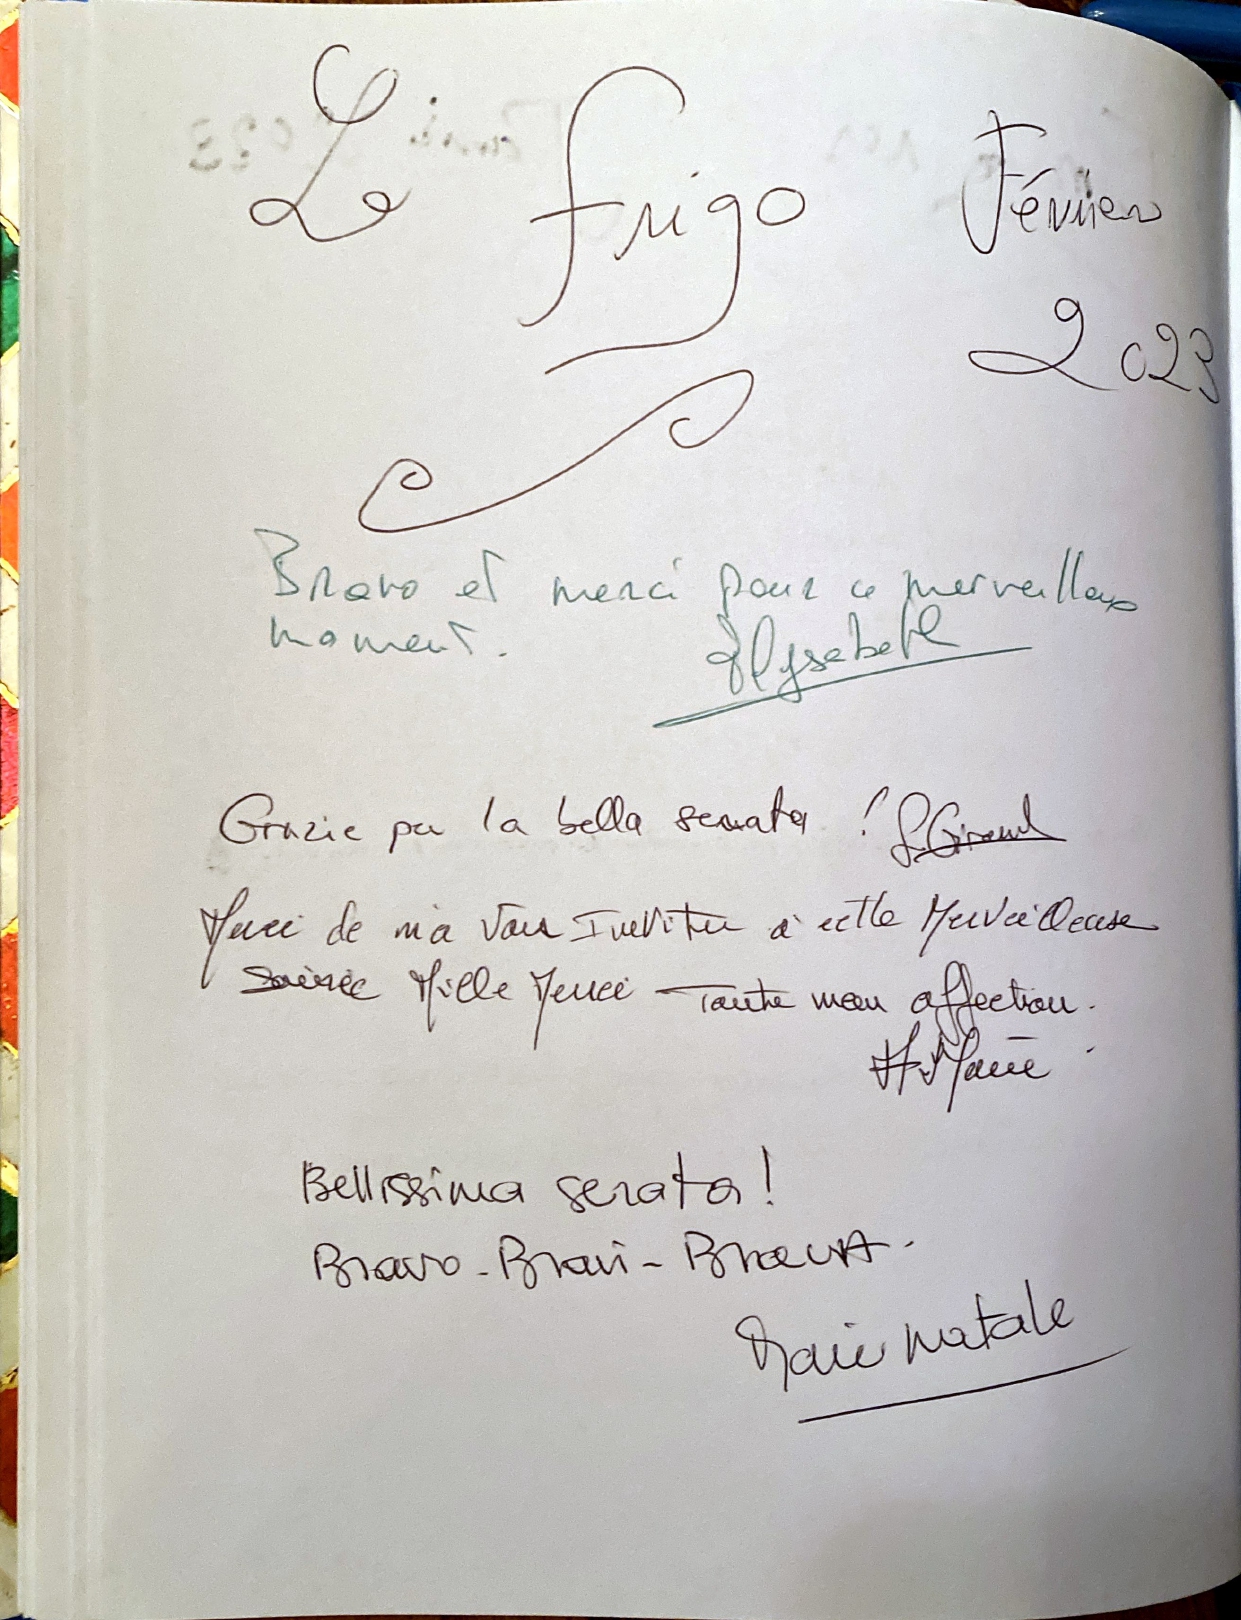 Le frigo Février
2023
Bravo et merci pour ce merveilleux
moment. Elysabeth
Grazie per la bella serata !
Merci de m'a Voir Inviter à cette Merveilleuse
Soirée Mille Merci Toute mon affection.
Marie
Bellissima serata !
Bravo - Bravi - Brava.
Marie Natale